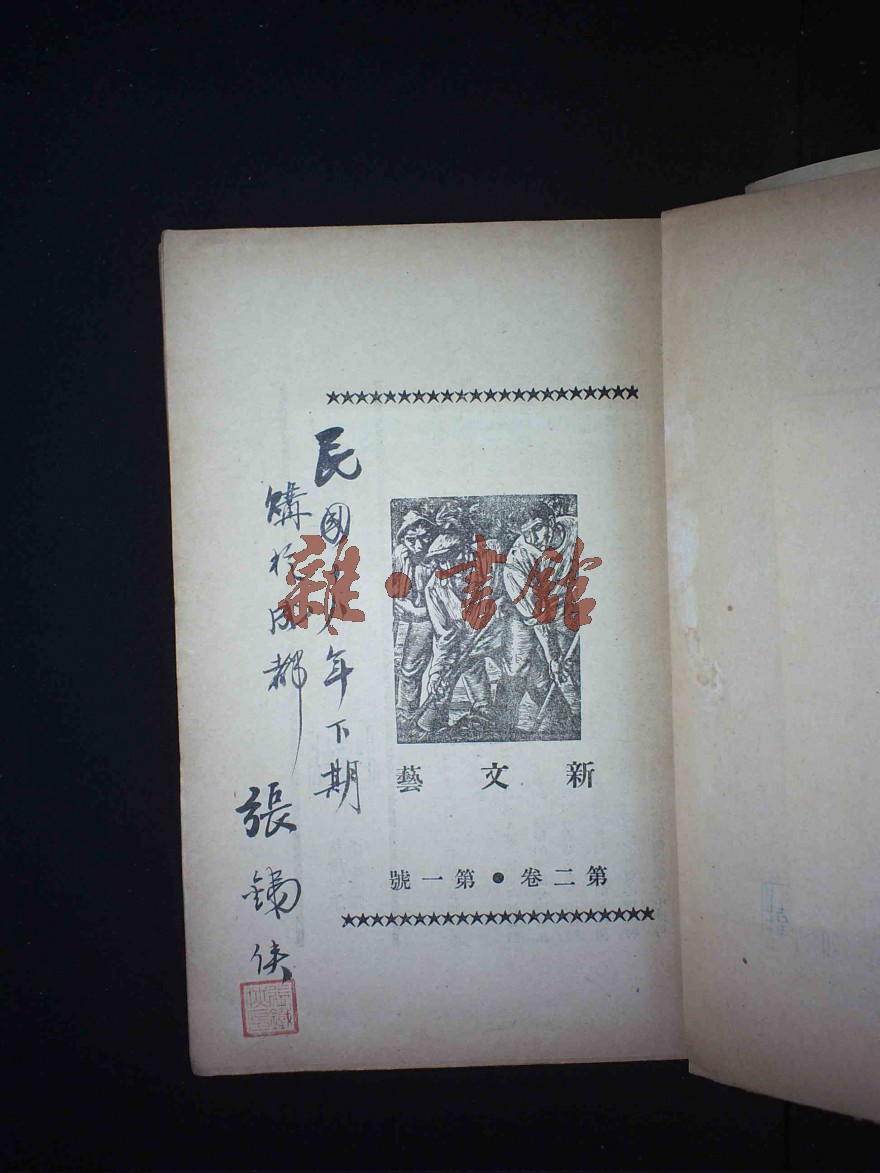 新文藝
第二卷●第一號
民國年下期
購於成都
張俠
雜·書館